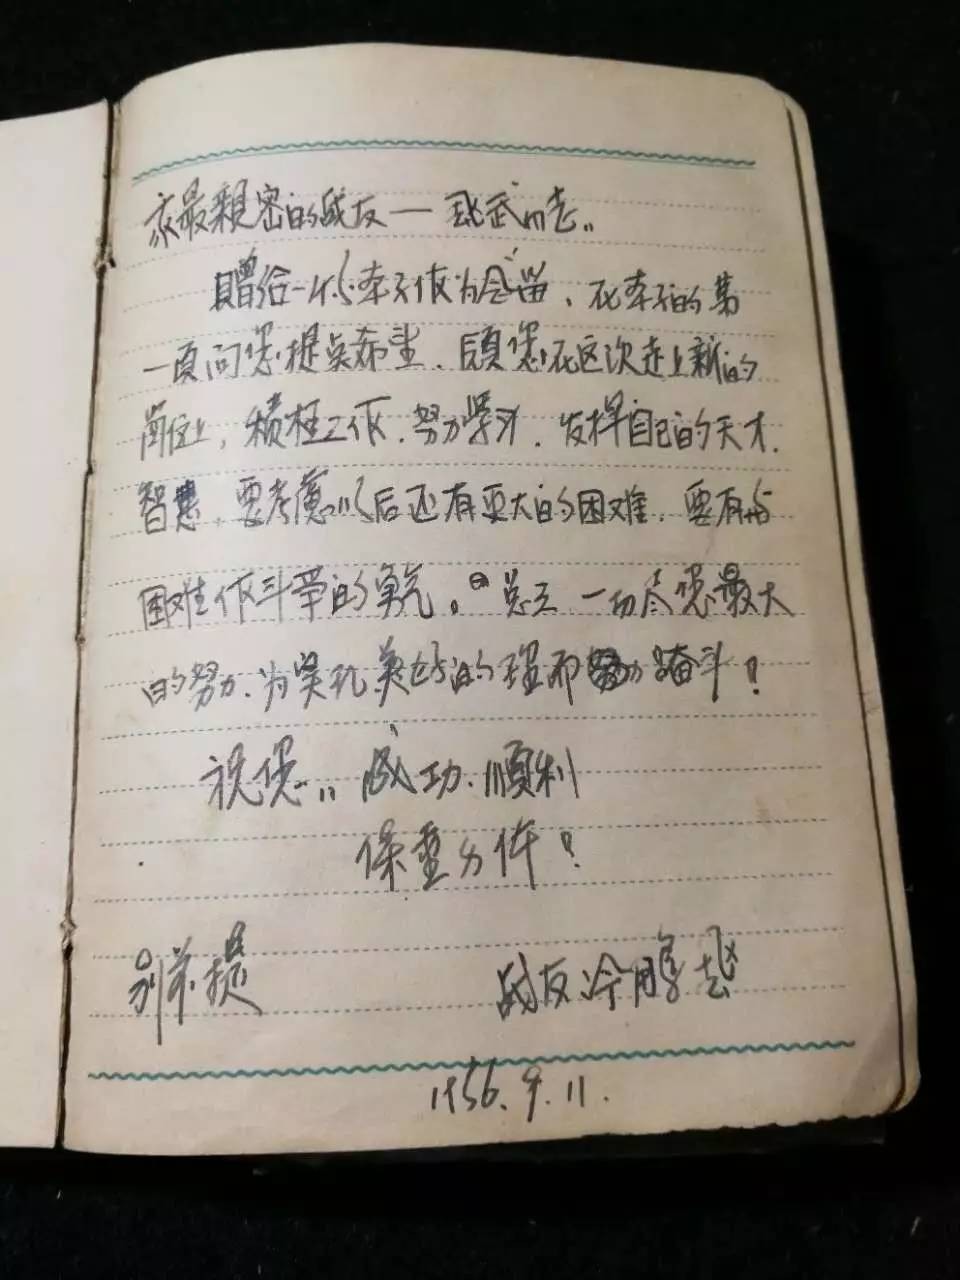 我最親密的战友—武志:
贈给一个小本子作为念留、在本子的第
一頁向您提点希望、願您在这次走上新的
崗位上,積極工作、努力学习、发挥自己的天才、
智慧、要考慮以后还有更大的困难、要有与
困难作斗争的勇气。总之一切尽您最大
的努力、为实现美好的理而努力奋斗!
祝您:成功、順利
保重身体!
别前提
战友冷
1956.9.11.